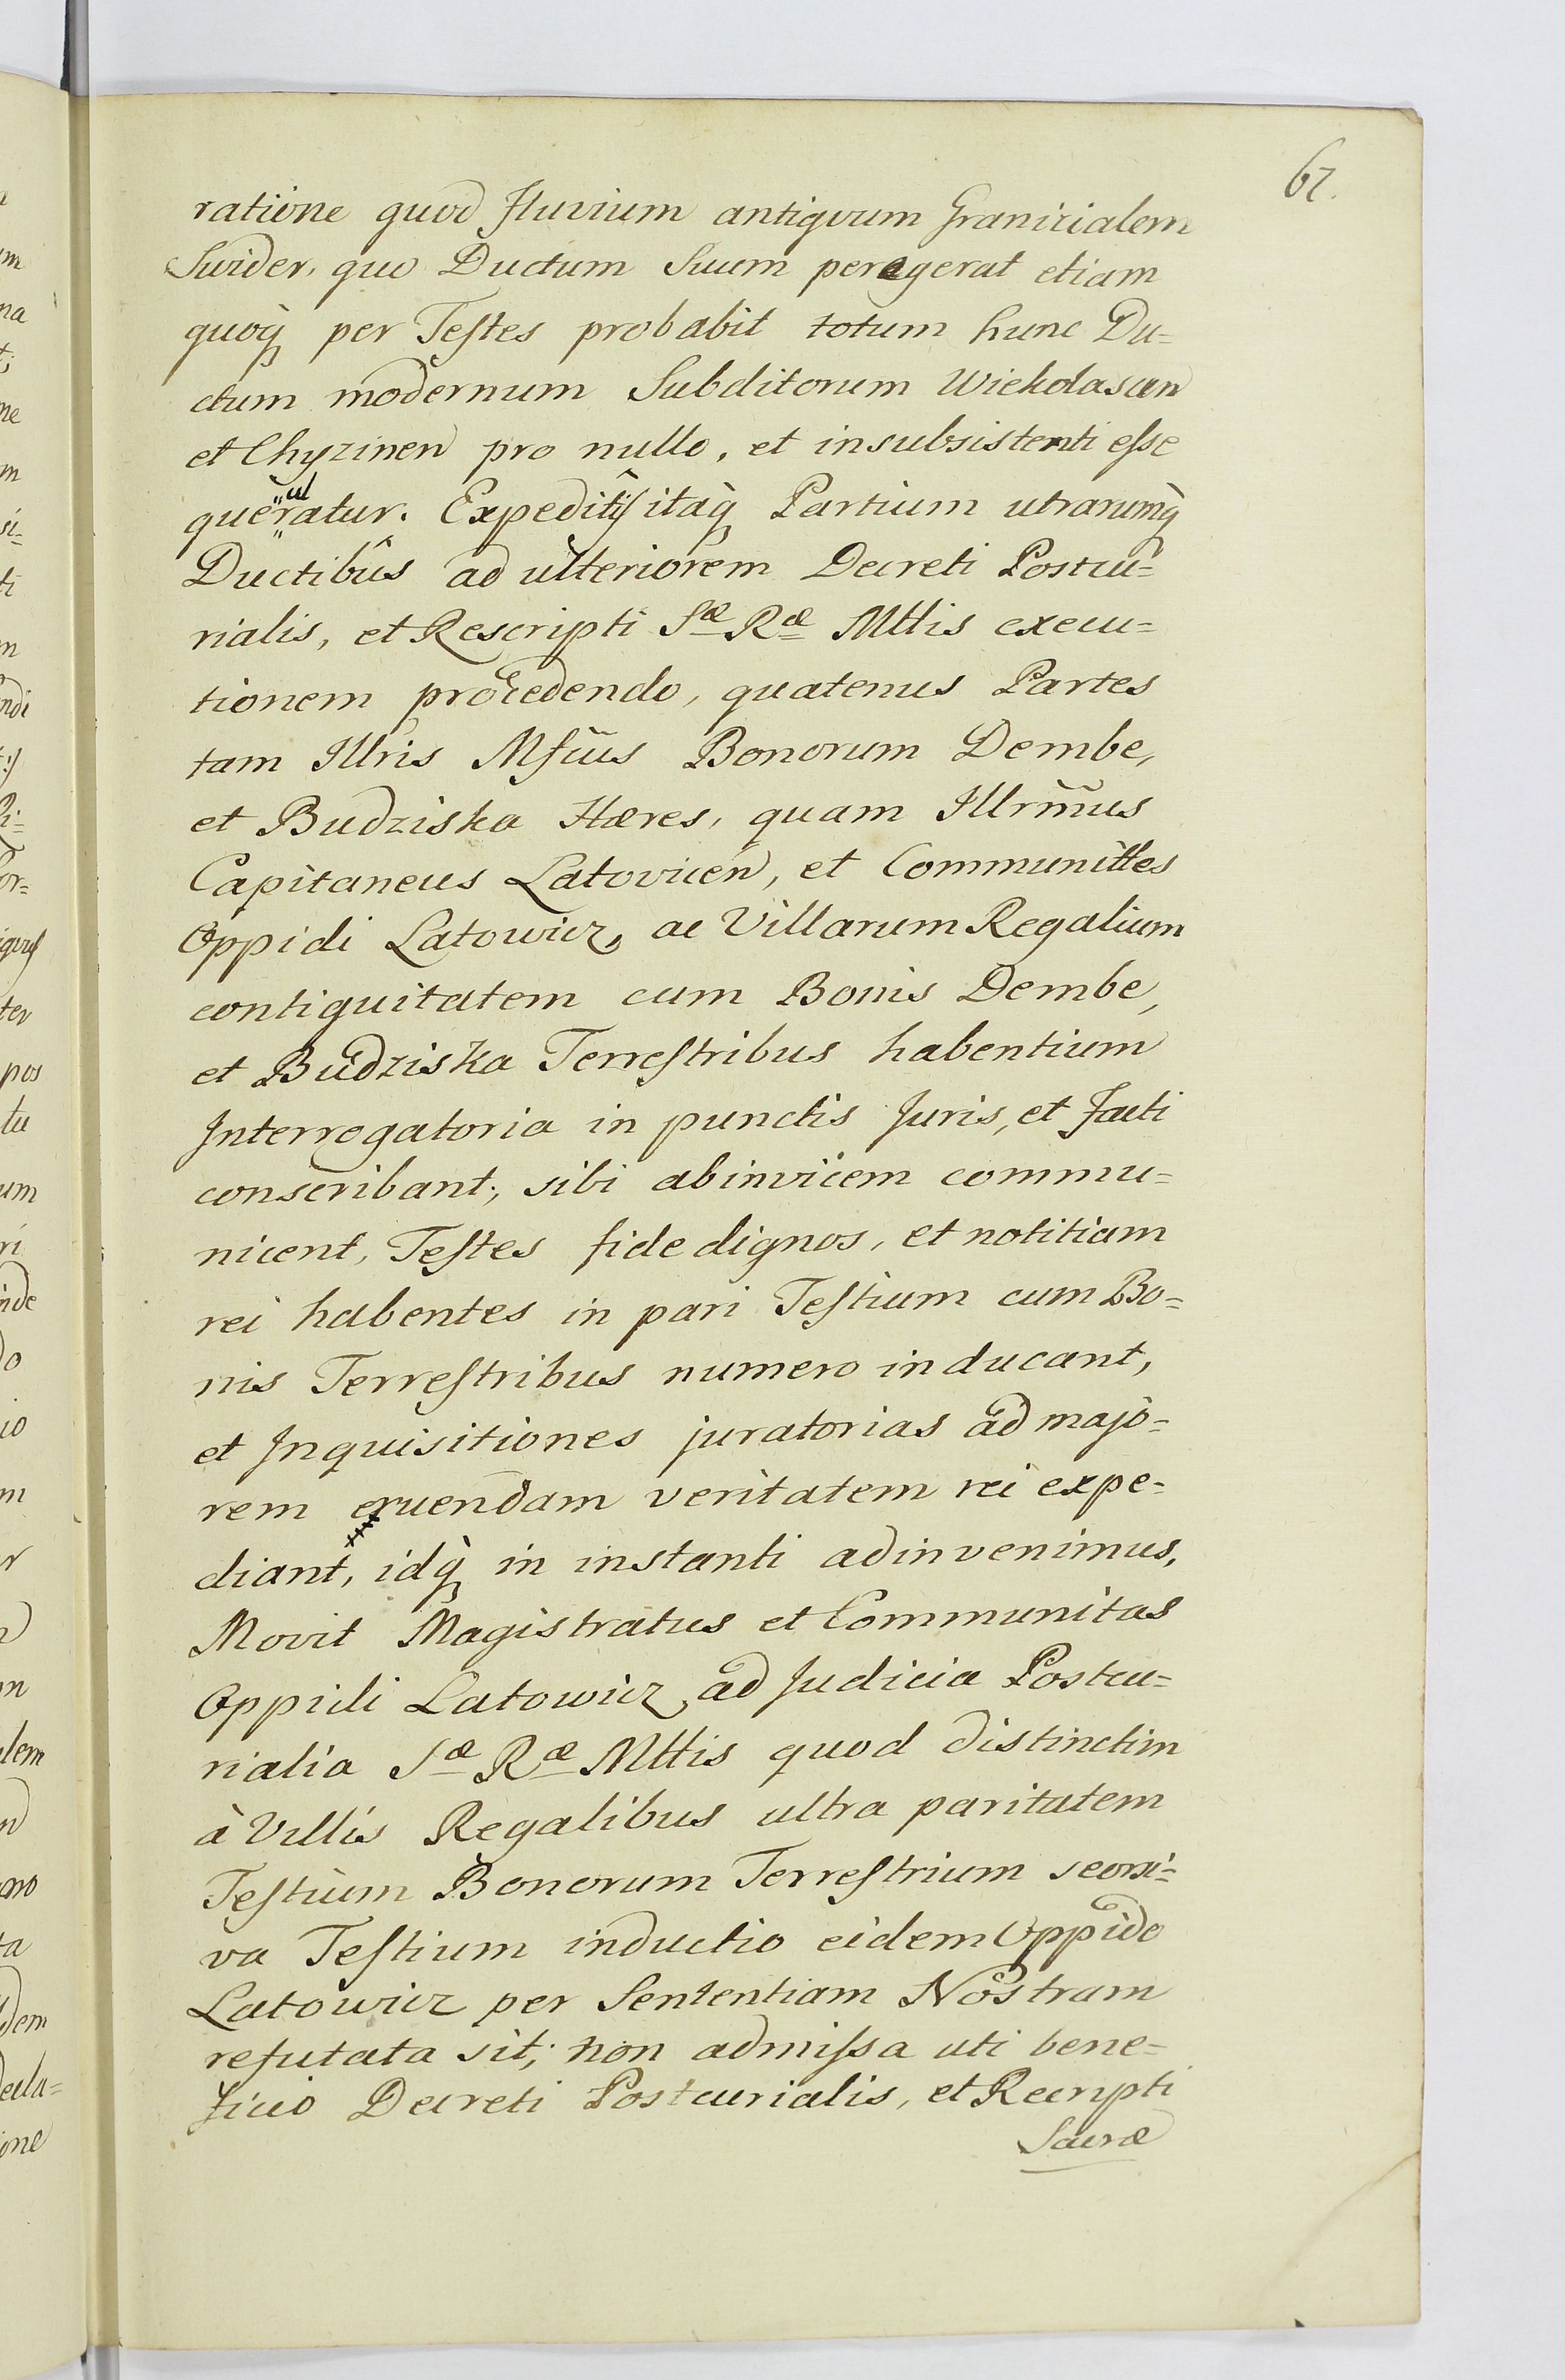 67.
ratione quod Fluvium antiquum Granicialem
Swider, quo Ductum Suum peregerat etiam
quoq̀ per Testes probabit totum hunc Du=
ctum modernum Subditorum Wielolasen
et Chyzinen pro nullo, et insubsistenti esse
queratur. Expeditis itaq̀ Partium utrarumq̀
Ductibûs ad ulteriorem Decreti Postcu=
rialis, et Rescripti Sæ Ræ Mttis execu=
tionem procedendo, quatenus Partes
tam Illris Mfcus Bonorum Dembe,
et Budziska Hæres, quam Illrm̃us
Capitaneus Latovicen, et Communittes
Oppidi Latowicz, ac Villarum Regalium
contiguitatem cum Bonis Dembe,
et Budziska Terrestribus habentium
Interrogatoria in punctis Juris, et Facti
conscribant, sibi abinvicem commu=
nicent, Testes fide dignos, et notitiam
rei habentes in pari Testium cum Bo=
nis Terrestribus numero inducant,
et Inquisitiones juratorias ad majo=
rem eruendam veritatem rei expe=
diant, idq̀ in instanti adinvenimus,
Movit Magistratus et Communitas
Oppidi Latowicz, ad Judicia Postcu=
rialia Sæ Ræ Mttis quod distinctim
à Villis Regalibus ultra paritatem
Testium Bonorum Terrestrium seorsi=
va Testium inductio eidem Oppido
Latowicz per Sententiam Nostram
refutata sit; non admissa uti bene=
ficio Decreti Postcurialis, et Recripti
Sacræ